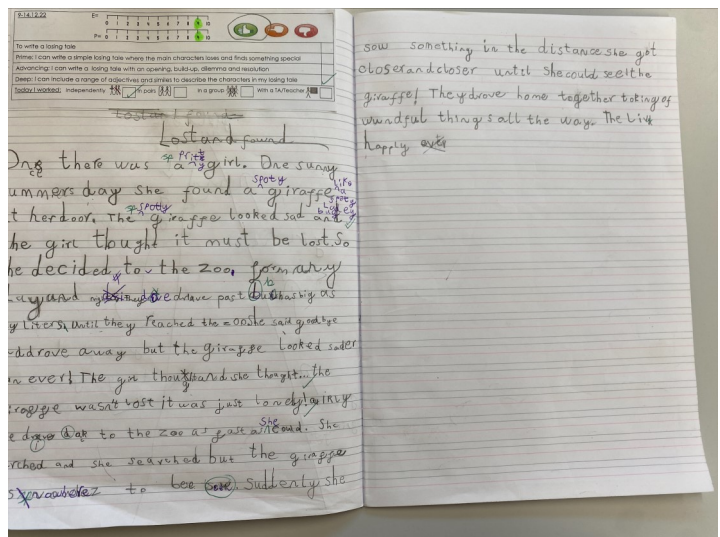 9-14.12.22
E=
0 1 2 3 4 5 6 7 8 9 10
P=
0 1 2 3 4 5 6 7 8 9 10
To write a losing tale
Prime: I can write a simple losing tale where the main characters loses and finds something special
Advancing: I can write a losing tale with an opening, build-up, dilemma and resolution
Deep: I can include a range of adjectives and similes to describe the characters in my losing tale
Today I worked: Independently In pairs In a group With a TA/Teacher
Lost and found
Lost and found
there was a prity girl. One sunny
ummers day she found a spoty giraffe
t her door. The spotly giraffe looked sad and
he girl thought it must be lost. So
he decided to the zoo. for many
and drave past big as
until they reached the she said goodbye
drove away but the giraffe looked sader
n ever! The girl thought and she thought... the
wasn't lost it was just lonely!
to the zoo as fast as she could. She
rched and she searched but the giraffe
to bee Suddenly she
sow something in the distance she got
closer and closer until she could see!the
giraffe! They drove home together toking of
wundful things all the way. The Live
happly ever